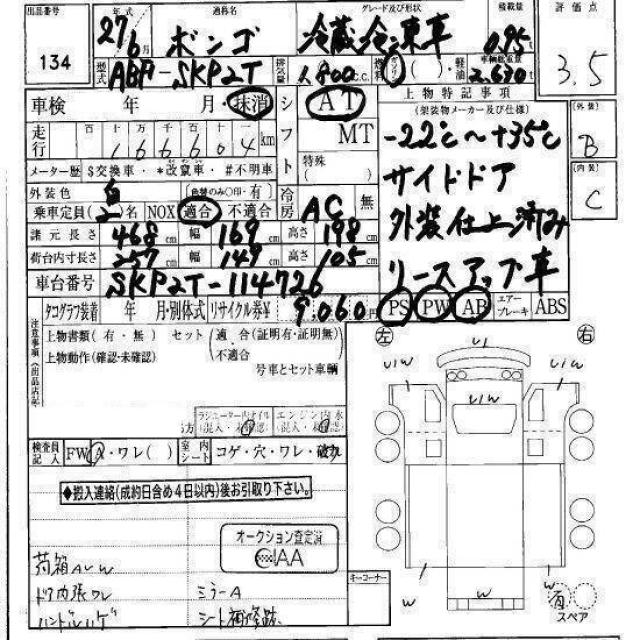 出品番号 年式 通称名 グレード及び形状 積載量 評価点
134 27 6月 ボンゴ 冷蔵冷凍車 0.95t 3.5
型式 ABF-SKP2T 排気量 1,800 C.C. 燃料 ガソリン ( )・軽油 車輌総重量 2.630t
車検 年 月・抹消 シフト AT MT 特殊( )
走行 百十万千百十 km 166604
メーター歴 $交換車・*改竄車・#不明車
外装色 白 (色替のみ〇印・有)
乗車定員(2)名 NOX 適合 不適合 冷房 AC 無
諸元長さ 468cm 幅 169cm 高さ 198cm
荷台内寸長さ 257cm 幅 149cm 高さ 105cm
車台番号 SKP2T-114726
タコグラフ装着 年 月・別体式 リサイクル券¥ 9,060円
上物特記事項
(架装物メーカー及び仕様)
-22℃~+35℃
サイドドア
外装仕上済み
リースアップ車
PS PW AB エアーブレーキ ABS
[外装]
B
[内装]
C
注意事項(出品店記
上物書類(有・無) セット(適合(証明有・証明無)・不適合
上物動作(確認・未確認) 号車とセット車輌
ラジエーター内オイル(混入・未確認) エンジン内水(混入・未確認)
検査員記入 FW A・ワレ( ) 室内シート コゲ・穴・ワレ・破れ
◆搬入連絡(成約日含め4日以内)後お引取り下さい。
オークション査定済
IAA
荷箱AUW
ドア内張ワレ ミラーA
ハンドルハゲ シート補修跡
キーコーナー
左 右
U1 U1W U1W U1W
W W W W
有
スペア